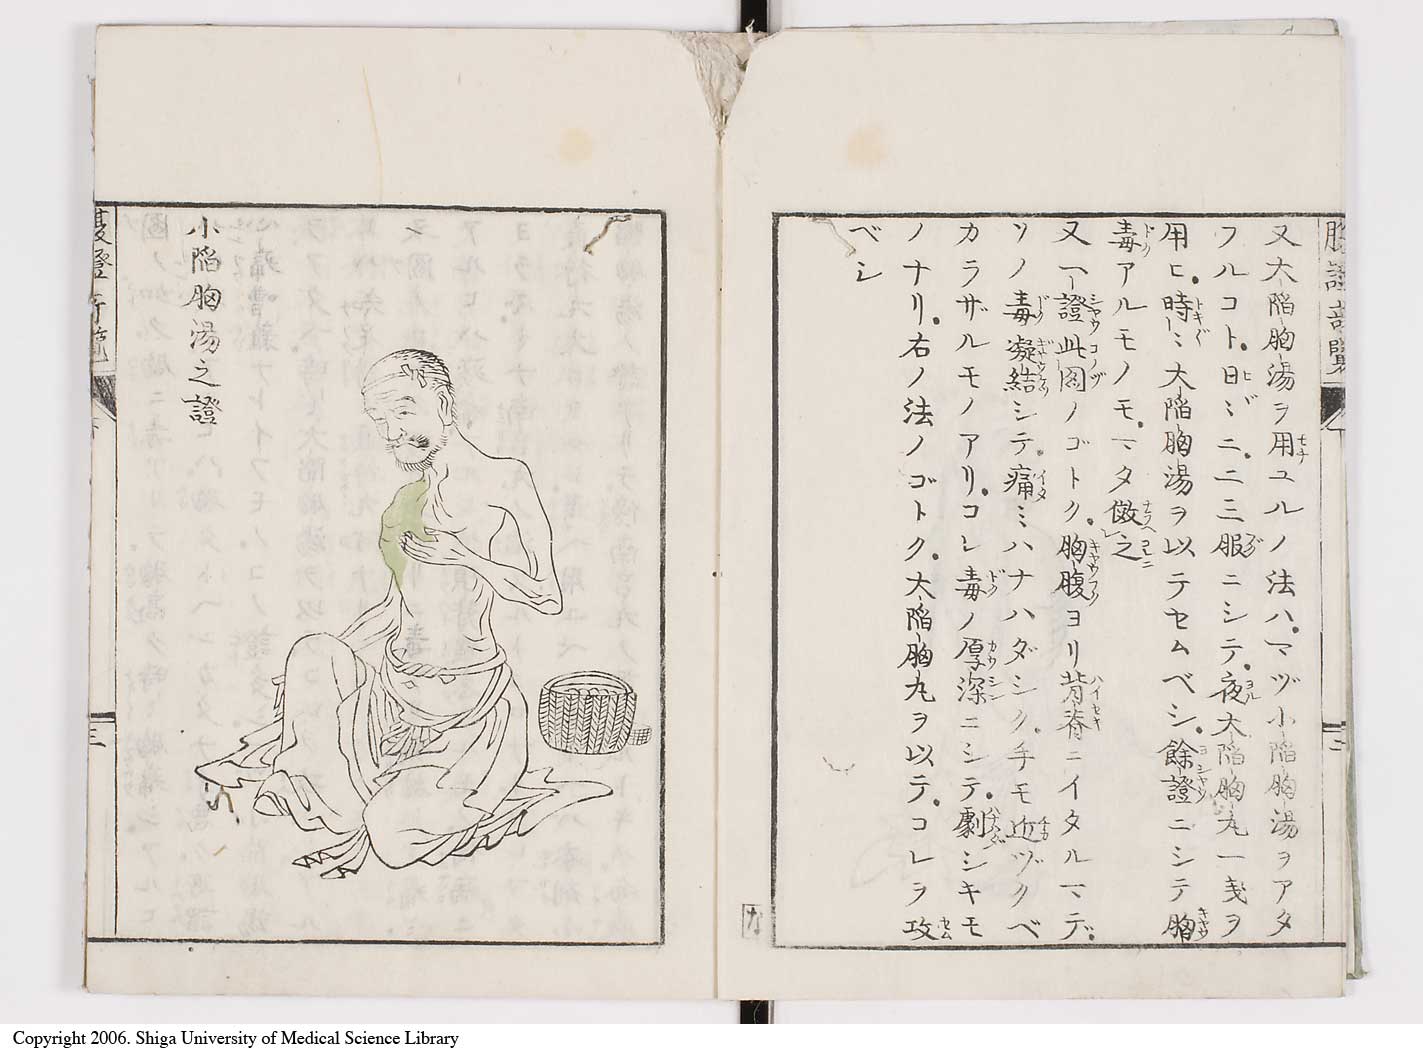 又大陷胸湯ヲ用ユルノ法ハ。マヅ小陷胸湯ヲアタ
フルコト。日ミニ。二三服ニシテ。夜大陷胸丸一戔ヲ
用ヒ。時ミ大陷胸湯ヲ以テセムベシ。餘證ニシテ胸
毒アルモノモ。マタ倣之
又一證此図ノゴトク。胸腹ヨリ背脊ニイタルマデ。
ソノ毒凝結シテ。痛ミハナハダシク。手モ近ヅクベ
カラザルモノアリ。コレ毒ノ厚深ニシテ。劇シキモ
ノナリ。右ノ法ノゴトク。大陷胸丸ヲ以テ。コレヲ攻
ベシ
小陷胸湯之證
三
Copyright 2006. Shiga University of Medical Science Library